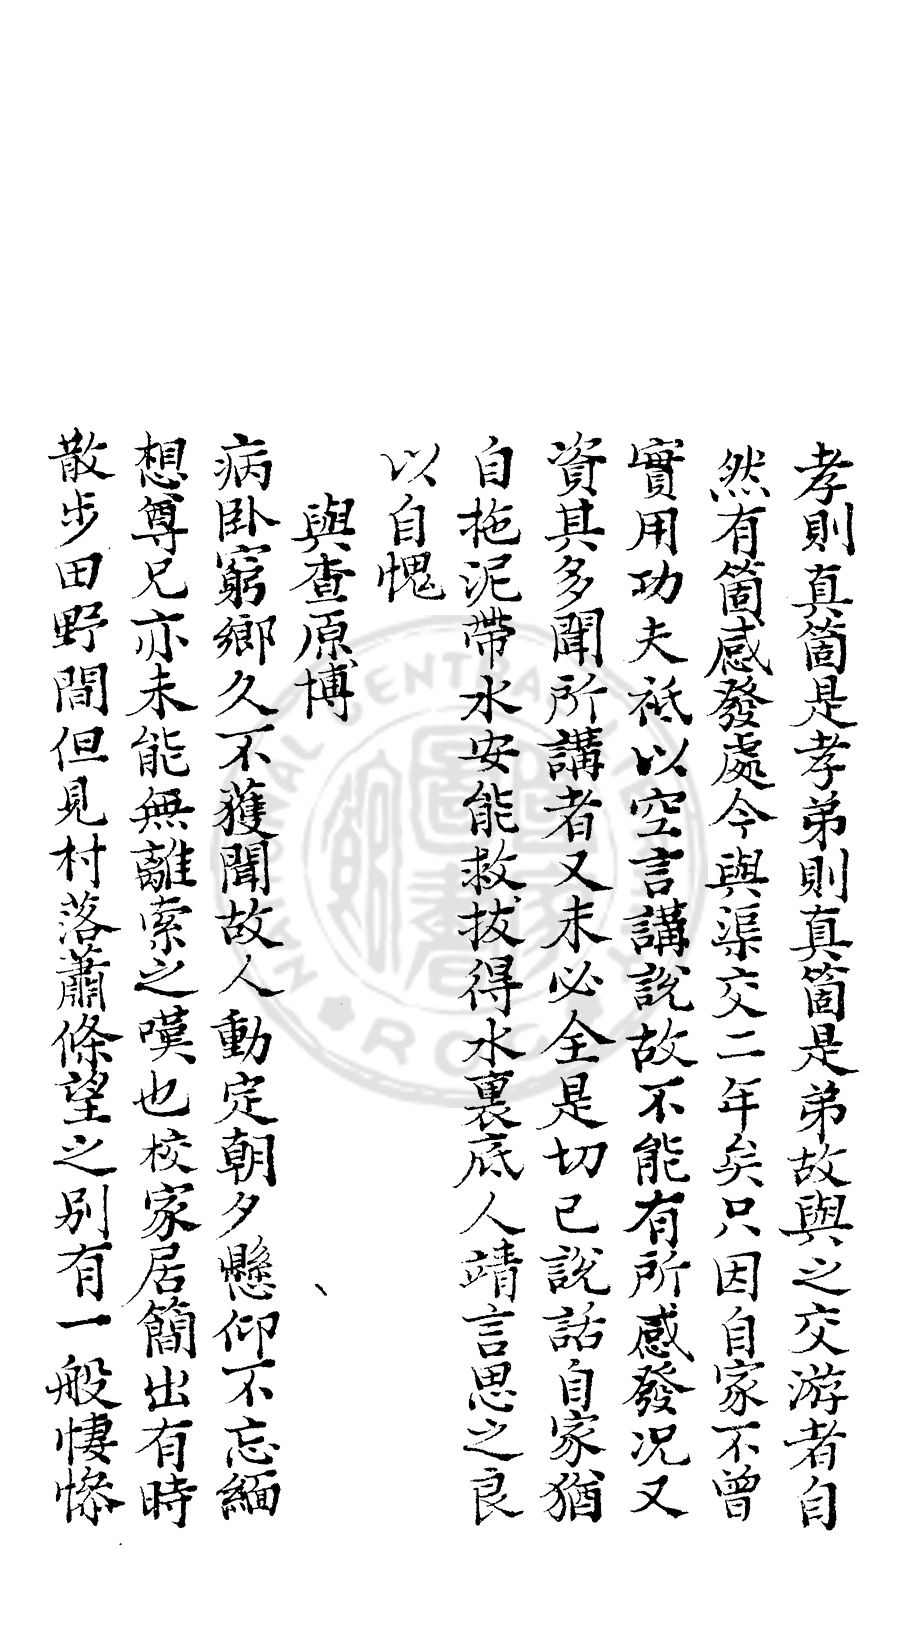 孝則真箇是孝弟則真箇是弟故與之交游者自
然有箇感發處今與渠交二年矣只因自家不曾
實用功夫祗以空言講說故不能有所感發况又
資其多聞所講者又未必全是切己說話自家猶
自拖泥帶水安能救拔得水裏底人靖言思之良
以自愧
與查原博
病卧窮鄉久不獲聞故人動定朝夕懸仰不忘緬
想尊兄亦未能無離索之嘆也校家居簡出有時
散步田野間但見村落蕭條望之別有一般悽慘